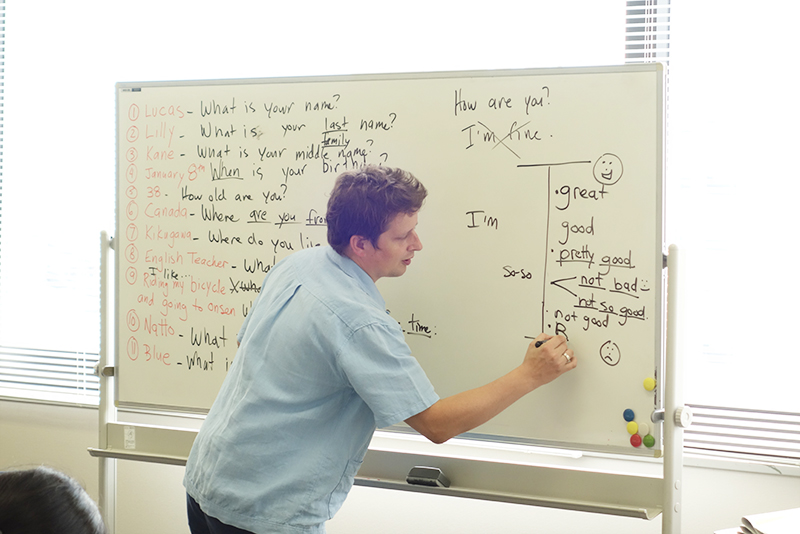 ① Lucas - What is your name?
② Lilly - What is your last name?
family
③ Kane - What is your middle name?
④ January 8th When is your birthday?
⑤ 38 - How old are you?
⑥ Canada - Where are you from
⑦ Kikugawa - Where do you
⑧ English Teacher - What
I like...
⑨ Riding my bicycle
and going to onsen
⑩ Natto - What
⑪ Blue - What is
time:
How are you?
I'm fine.
I'm
so-so
• great
good
• pretty good
not bad
not so good.
• not good
• B